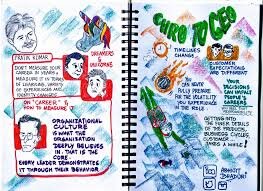 PRAVIN KUMAR
DON'T MEASURE YOUR
CAREER IN YEARS.
MEASURE IT IN TERMS
OF LEARNING, VARIETY
OF EXPERIENCES AND
IDENTITY CHANGES
DREAMERS
&
UNICORNS
ON "CAREER" &
HOW TO MEASURE
ORGANIZATIONAL
CULTURE
IS WHAT THE
ORGANISATION
DEEPLY BELIEVES
IN. THAT IS THE
CORE.
EVERY LEADER DEMONSTRATES
IT THROUGH THEIR BEHAVIOR
CHRO TO CEO
TIMELINES
CHANGE
CUSTOMER
EXPECTATIONS
ARE DIFFERENT
YOU
CAN NEVER
FULLY PREPARE
FOR THE VOLATILITY
YOU EXPERIENCE
IN THE ROLE
YOUR
DECISIONS
CAN IMPACT
PEOPLE'S
CAREERS
GETTING INTO
THE INNER DETAILS
OF THE PRODUCTS,
BUSINESS CYCLES,
CUSTOMERS
TAKES A WHILE!
ABHIJIT
BHADURI